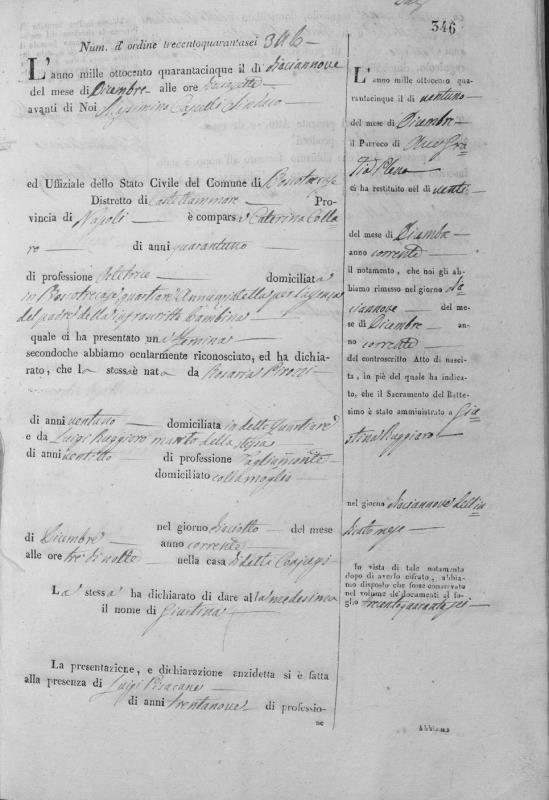 346
Num. d'ordine trecentoquarantasei 346
L'anno mille ottocento quarantacinque il dì diciannove
del mese di Dicembre alle ore
avanti di Noi Sindaco
ed Uffiziale dello Stato Civile del Comune di Boscotrecase
Distretto di Castellammare Pro-
vincia di Napoli è comparsa Caterina Colla
ro di anni quarantuno
di professione Ostetrice domiciliata
in Boscotrecase quartiere Annunziatella per l'assenza
del padre della infrascritta bambina
quale ci ha presentato una Femina
secondochè abbiamo ocularmente riconosciato, ed ha dichia-
rato, che la stessa è nata da Rosaria
di anni ventuno domiciliata in detto Quartiere
e da Luigi Ruggiero marito della stessa
di anni ventotto di professione Tagliamonte
domiciliato colla moglie
nel giorno diciotto del mese
di Dicembre anno corrente
alle ore tre di notte nella casa di detti Conjugi
La stessa ha dichiarato di dare alla medesima
il nome di Giustina
La presentazione, e dichiarazione anzidetta si è fatta
alla presenza di Luigi Pisacane
di anni trentanove di professio-
ne
L'anno mille ottocento qua-
rantacinque il dì ventuno
del mese di Dicembre
il Parroco di Ave Gra
tia Plena
ci ha restituito nel dì venti
del mese di Dicembre
anno corrente
il notamento, che noi gli ab-
biamo rimesso nel giorno di
ciannove del me-
se di Dicembre an-
no corrente
del controscritto Atto di nasci-
ta, in piè del quale ha indica-
to, che il Sacramento del Batte-
simo è stato amministrato a Giu
stina Ruggiero
nel giorno diciannove dell'in
dicato mese
In vista di tale notamento
dopo di averlo cifrato, abbia-
mo disposto che fosse conservato
nel volume de' documenti al fo-
glio trecentoquarantasei
Abbiamo